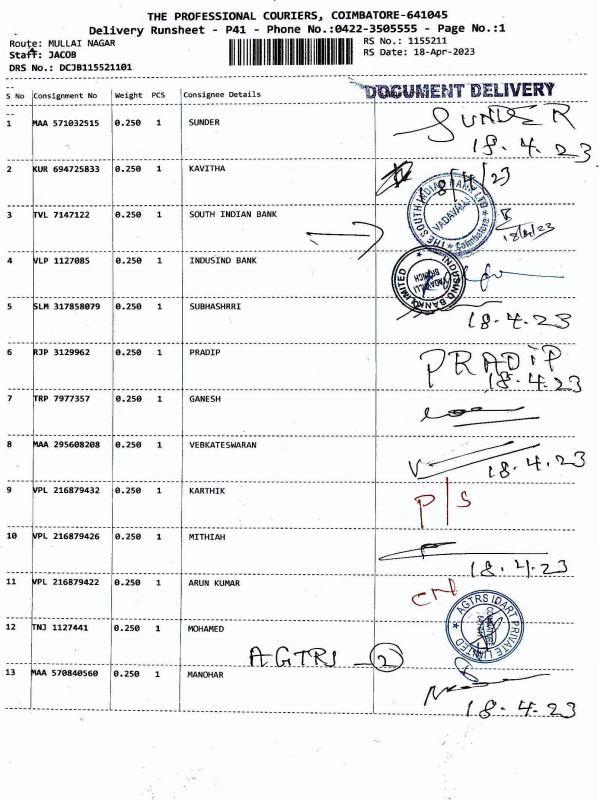 THE PROFESSIONAL COURIERS, COIMBATORE-641045
Delivery Runsheet - P41 - Phone No.:0422-3505555 - Page No.:1
Route: MULLAI NAGAR RS No.: 1155211
Staff: JACOB RS Date: 18-Apr-2023
DRS No.: DCJB115521101
DOCUMENT DELIVERY
S No Consignment No Weight PCS Consignee Details
1 MAA 571032515 0.250 1 SUNDER SUNDER
18.4.23
2 KUR 694725833 0.250 1 KAVITHA 18/4/23
3 TVL 7147122 0.250 1 SOUTH INDIAN BANK
THE SOUTH INDIAN BANK LTD VADAVALLI Coimbatore
18/4/23
4 VLP 1127085 0.250 1 INDUSIND BANK
INDUSIND BANK LIMITED VADAVALLI BRANCH
5 SLM 317858079 0.250 1 SUBHASHRRI 18.4.23
6 RJP 3129962 0.250 1 PRADIP PRADIP
18.4.23
7 TRP 7977357 0.250 1 GANESH
8 MAA 295608208 0.250 1 VEBKATESWARAN 18.4.23
9 VPL 216879432 0.250 1 KARTHIK P/S
10 VPL 216879426 0.250 1 MITHIAH
18.4.23
11 VPL 216879422 0.250 1 ARUN KUMAR CN
AGTRS IDART PRIVATE LIMITED
12 TNJ 1127441 0.250 1 MOHAMED
AGTRS - 2
13 MAA 570840560 0.250 1 MANOHAR
18.4.23